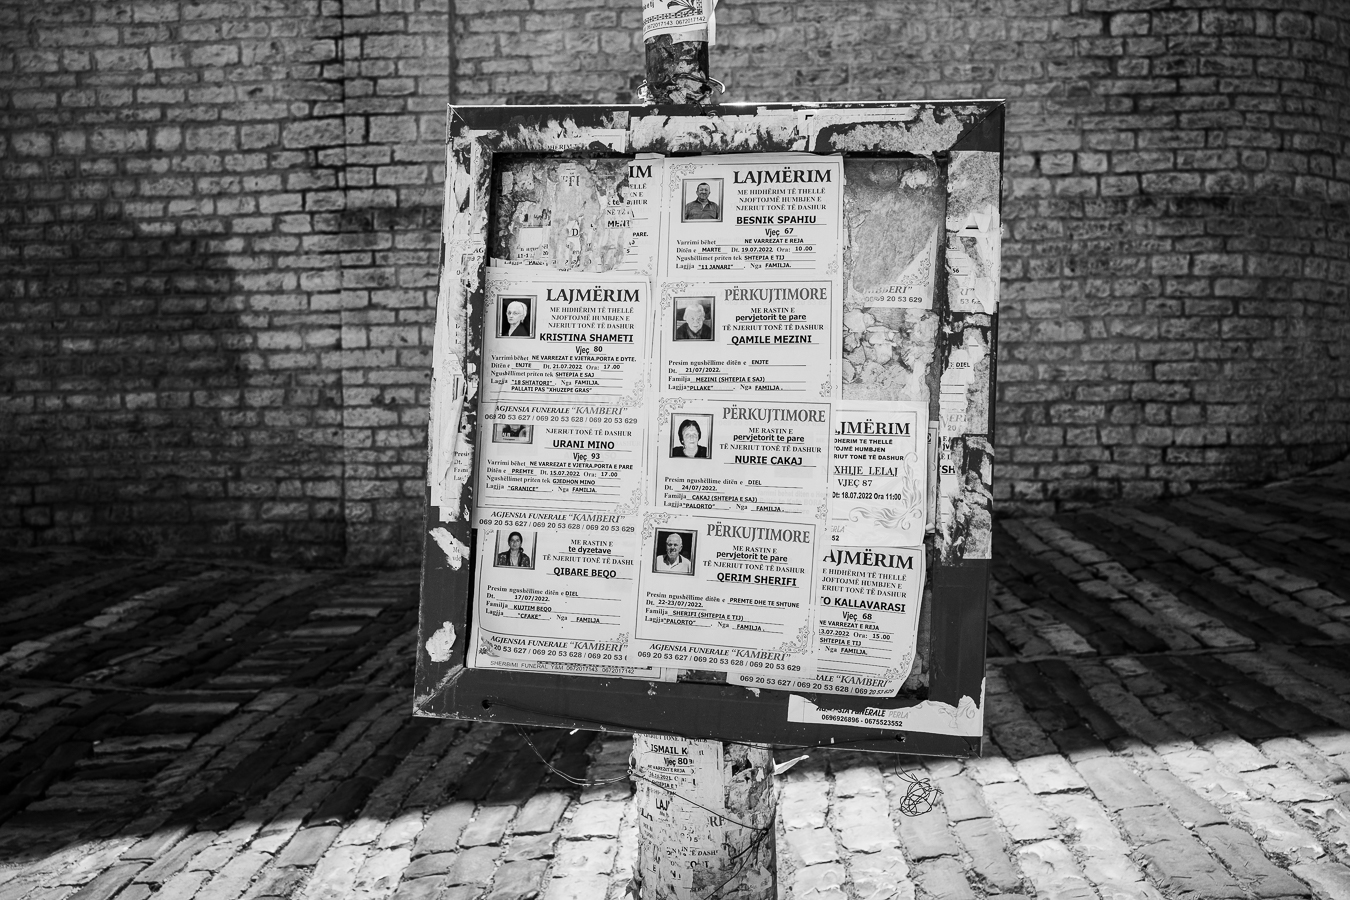 0672017143 0672017142
LAJMËRIM
ME HIDHËRIM TË THELLË
NJOFTOJMË HUMBJEN E
NJERIUT TONË TË DASHUR
BESNIK SPAHIU
Vjeç 67
Varrimi bëhet NE VARREZAT E REJA
Ditën e MARTE Dt. 19.07.2022 Ora: 10.00
Ngushëllimet priten tek SHTEPIA E TIJ
Lagjja "11 JANARI" . Nga FAMILJA.
LAJMËRIM
ME HIDHËRIM TË THELLË
NJOFTOJMË HUMBJEN E
NJERIUT TONË TË DASHUR
KRISTINA SHAMETI
Vjeç 80
Varrimi bëhet NE VARREZAT E VJETRA.PORTA E DYTE.
Ditën e ENJTE Dt. 21.07.2022 Ora: 17.00
Ngushëllimet priten tek SHTEPIA E SAJ
Lagjja "18 SHTATORI" . Nga FAMILJA.
PALLATI PAS "XHUZEPE GRAS"
AGJENSIA FUNERALE "KAMBERI"
069 20 53 627 / 069 20 53 628 / 069 20 53 629
NJERIUT TONË TË DASHUR
URANI MINO
Vjeç 93
Varrimi bëhet NE VARREZAT E VJETRA.PORTA E PARE
Ditën e PREMTE Dt. 15.07.2022 Ora: 17.00
Ngushëllimet priten tek GJEDHON MINO
Lagjja "GRANICE" . Nga FAMILJA.
AGJENSIA FUNERALE "KAMBERI"
069 20 53 627 / 069 20 53 628 / 069 20 53 629
ME RASTIN E
te dyzetave
TË NJERIUT TONË TË DASHUR
QIBARE BEQO
Presim ngushëllime ditën e DIEL
Dt. 17/07/2022.
Familja KUJTIM BEQO
Lagjja "CFAKE" . Nga FAMILJA
AGJENSIA FUNERALE "KAMBERI"
069 20 53 627 / 069 20 53 628 / 069 20 53
SHERBIMI FUNERAL Y&M 0672017143 0672017142
PËRKUJTIMORE
ME RASTIN E
pervjetorit te pare
TË NJERIUT TONË TË DASHUR
QAMILE MEZINI
Presim ngushëllime ditën e ENJTE
Dt. 21/07/2022.
Familja MEZINI (SHTEPIA E SAJ)
Lagjja "PLLAKE" . Nga FAMILJA .
PËRKUJTIMORE
ME RASTIN E
pervjetorit te pare
TË NJERIUT TONË TË DASHUR
NURIE CAKAJ
Presim ngushëllime ditën e DIEL
Dt. 24/07/2022.
Familja CAKAJ (SHTEPIA E SAJ)
Lagjja "PALORTO" . Nga FAMILJA .
PËRKUJTIMORE
ME RASTIN E
pervjetorit te pare
TË NJERIUT TONË TË DASHUR
QERIM SHERIFI
Presim ngushëllime ditën e PREMTE DHE TE SHTUNE
Dt. 22-23/07/2022.
Familja SHERIFI (SHTEPIA E TIJ)
Lagjja "PALORTO" . Nga FAMILJA .
AGJENSIA FUNERALE "KAMBERI"
069 20 53 627 / 069 20 53 628 / 069 20 53 629
BERI"
20 53 629
JMËRIM
DHERIM TE THELLE
JME HUMBJEN
RIUT TONE TE DASHUR
XHIJE LELAJ
VJEÇ 87
Dt: 18.07.2022 Ora 11:00
AJMËRIM
E HIDHËRIM TË THELLË
JOFTOJMË HUMBJEN E
JERIUT TONË TË DASHUR
O KALLAVARASI
Vjeç 68
VARREZAT E REJA
13.07.2022 Ora: 15.00
SHTEPIA E TIJ
Nga FAMILJA.
RALE "KAMBERI"
069 20 53 627 / 069 20 53 628 / 069 20 53 629
FUNERALE PERLA
0696926896 - 0675523552
ISMAIL K
Vjeç 80